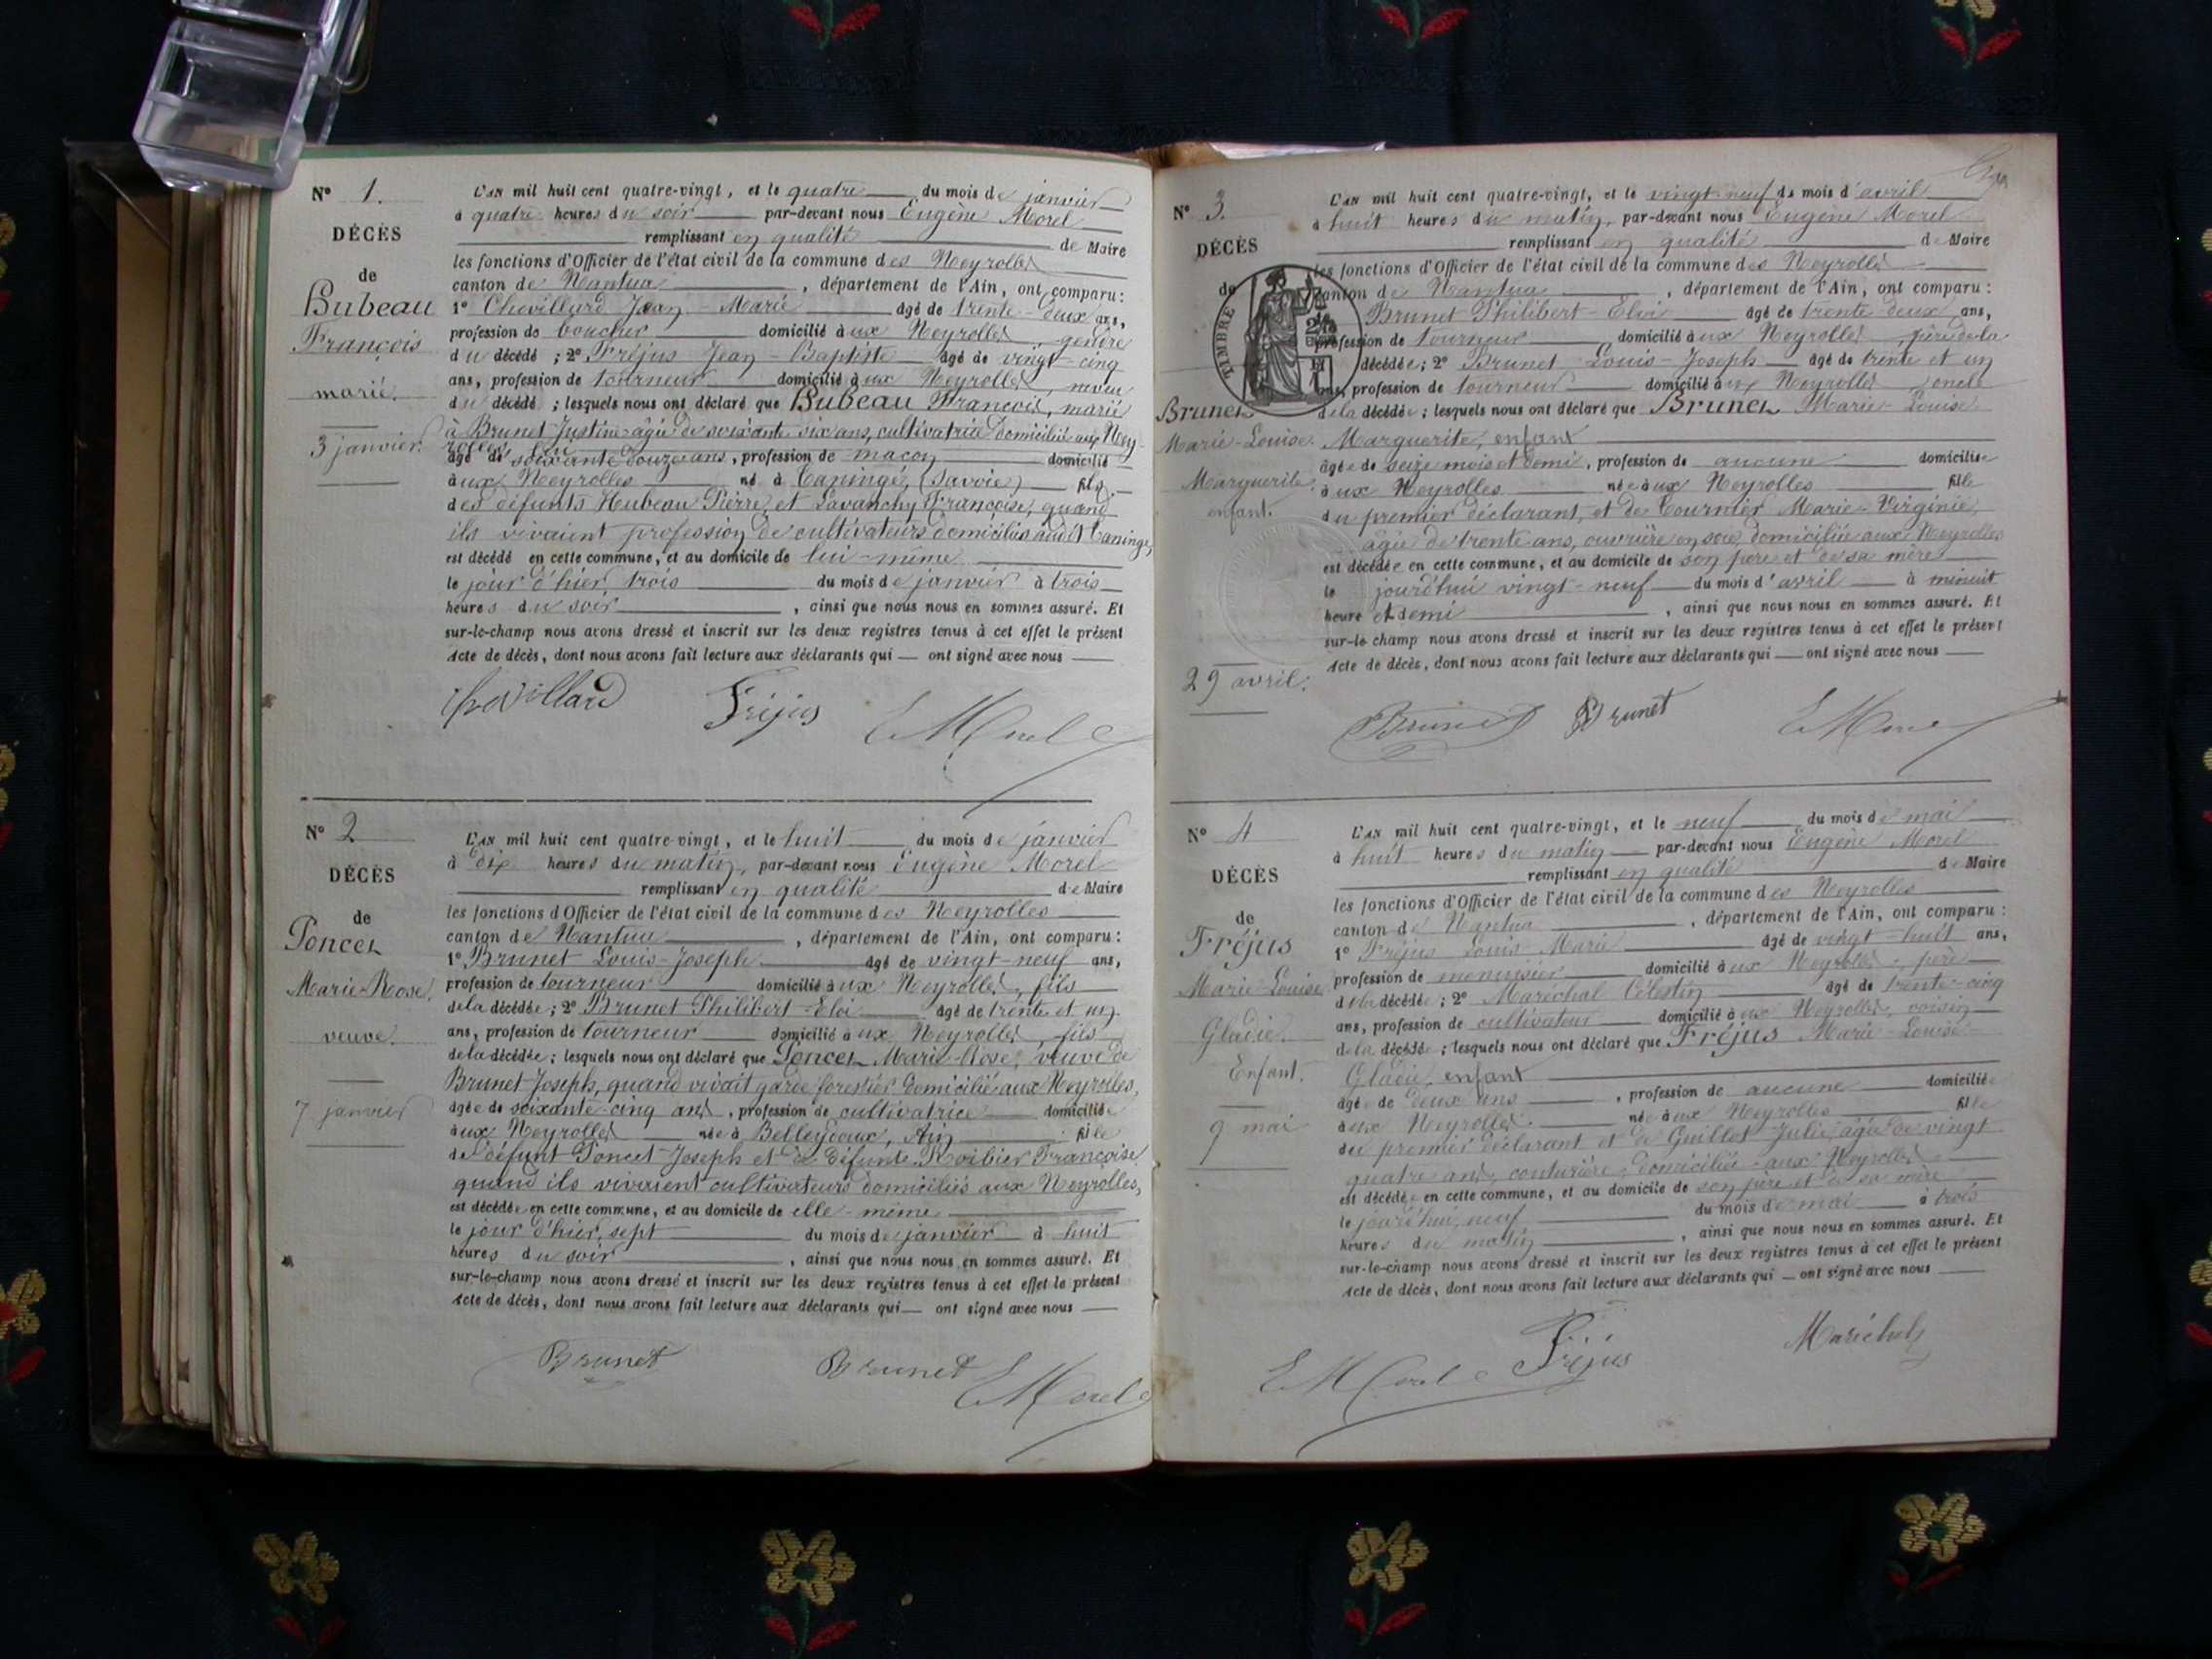 N° 1.
DÉCÈS
de
Hubeau
François
marié.
3 janvier.
L'AN mil huit cent quatre-vingt, et le quatre du mois de janvier
à quatre heures du soir par-devant nous Eugène Morel
remplissant en qualité de Maire
les fonctions d'Officier de l'état civil de la commune des Neyrolles
canton de Nantua, département de l'Ain, ont comparu:
1° Chevillard Jean-Marie âgé de trente-deux ans,
profession de boucher domicilié aux Neyrolles gendre
du décédé; 2° Fréjus Jean-Baptiste âgé de vingt-cinq
ans, profession de tourneur domicilié aux Neyrolles, neveu
du décédé; lesquels nous ont déclaré que Hubeau François, marié
à Brunet Justine âgée de soixante six ans, cultivatrice domiciliée aux Ney-
rolles,
âgé de soixante douze ans, profession de maçon domicilié
aux Neyrolles né à Taninge, (Savoie) fils
des défunts Hubeau Pierre, et Lavanchy Françoise, quand
ils vivaient profession de cultivateurs domiciliés audit Taninge,
est décédé en cette commune, et au domicile de lui-même
le jour d'hier trois du mois de janvier à trois
heures du soir, ainsi que nous nous en sommes assuré. Et
sur-le-champ nous avons dressé et inscrit sur les deux registres tenus à cet effet le présent
Acte de décès, dont nous avons fait lecture aux déclarants qui — ont signé avec nous —
Chevillard Fréjus E Morel
N° 2
DÉCÈS
de
Poncet
Marie-Rose,
veuve.
7 janvier
L'AN mil huit cent quatre-vingt, et le huit du mois de janvier
à dix heures du matin, par-devant nous Eugène Morel
remplissant en qualité de Maire
les fonctions d'Officier de l'état civil de la commune des Neyrolles
canton de Nantua, département de l'Ain, ont comparu:
1° Brunet Louis-Joseph âgé de vingt-neuf ans,
profession de tourneur domicilié aux Neyrolles, fils
de la décédée; 2° Brunet Philibert-Eloi âgé de trente et un
ans, profession de tourneur domicilié aux Neyrolles, fils
de la décédée; lesquels nous ont déclaré que Poncet Marie-Rose, veuve de
Brunet Joseph, quand vivait garde forestier domicilié aux Neyrolles,
âgée de soixante-cinq ans, profession de cultivatrice domiciliée
aux Neyrolles née à Belleydoux, Ain fille
de défunt Poncet Joseph et de défunte Françoise
quand ils vivaient cultivateurs domiciliés aux Neyrolles,
est décédée en cette commune, et au domicile de elle-même
le jour d'hier, sept du mois de janvier à huit
heures du soir, ainsi que nous nous en sommes assuré. Et
sur-le-champ nous avons dressé et inscrit sur les deux registres tenus à cet effet le présent
Acte de décès, dont nous avons fait lecture aux déclarants qui — ont signé avec nous —
Brunet Brunet E Morel
N° 3.
DÉCÈS
de
TIMBRE
Brunet
Marie-Louise
Marguerite
enfant.
29 avril.
L'AN mil huit cent quatre-vingt, et le vingt-neuf du mois d'avril
à huit heures du matin, par-devant nous Eugène Morel
remplissant en qualité de Maire
les fonctions d'Officier de l'état civil de la commune des Neyrolles
canton de Nantua, département de l'Ain, ont comparu:
Brunet Philibert-Eloi âgé de trente deux ans,
profession de tourneur domicilié aux Neyrolles, père de la
décédée; 2° Brunet Louis-Joseph âgé de trente et un
ans, profession de tourneur domicilié aux Neyrolles, oncle
de la décédée; lesquels nous ont déclaré que Brunet Marie-Louise
Marguerite, enfant
âgée de seize mois et demi, profession de aucune domiciliée
aux Neyrolles née aux Neyrolles fille
du premier déclarant, et de Tournier Marie-Virginie,
âgée de trente ans, ouvrière en soie, domiciliée aux Neyrolles
est décédée en cette commune, et au domicile de son père et de sa mère
le jourd'hui vingt-neuf du mois d'avril à minuit
heure et demi, ainsi que nous nous en sommes assuré. Et
sur-le-champ nous avons dressé et inscrit sur les deux registres tenus à cet effet le présent
Acte de décès, dont nous avons fait lecture aux déclarants qui — ont signé avec nous —
Brunet Brunet E Morel
N° 4
DÉCÈS
de
Fréjus
Marie-Louise
Gladie.
Enfant.
9 mai
L'AN mil huit cent quatre-vingt, et le neuf du mois de mai
à huit heures du matin par-devant nous Eugène Morel
remplissant en qualité de Maire
les fonctions d'Officier de l'état civil de la commune des Neyrolles
canton de Nantua, département de l'Ain, ont comparu:
1° Fréjus Louis-Marie âgé de vingt-huit ans,
profession de menuisier domicilié aux Neyrolles, père
de la décédée; 2° Maréchal Célestin âgé de trente-cinq
ans, profession de cultivateur domicilié aux Neyrolles, voisin
de la décédée; lesquels nous ont déclaré que Fréjus Marie-Louise
Gladie, enfant
âgée de deux ans, profession de aucune domiciliée
aux Neyrolles née aux Neyrolles fille
du premier déclarant et de Guillot Julie, âgée de vingt
quatre ans, couturière, domiciliée aux Neyrolles
est décédée en cette commune, et au domicile de son père et de sa mère
le jourd'hui neuf du mois de mai à trois
heures du matin, ainsi que nous nous en sommes assuré. Et
sur-le-champ nous avons dressé et inscrit sur les deux registres tenus à cet effet le présent
Acte de décès, dont nous avons fait lecture aux déclarants qui — ont signé avec nous —
E Morel Fréjus Maréchal